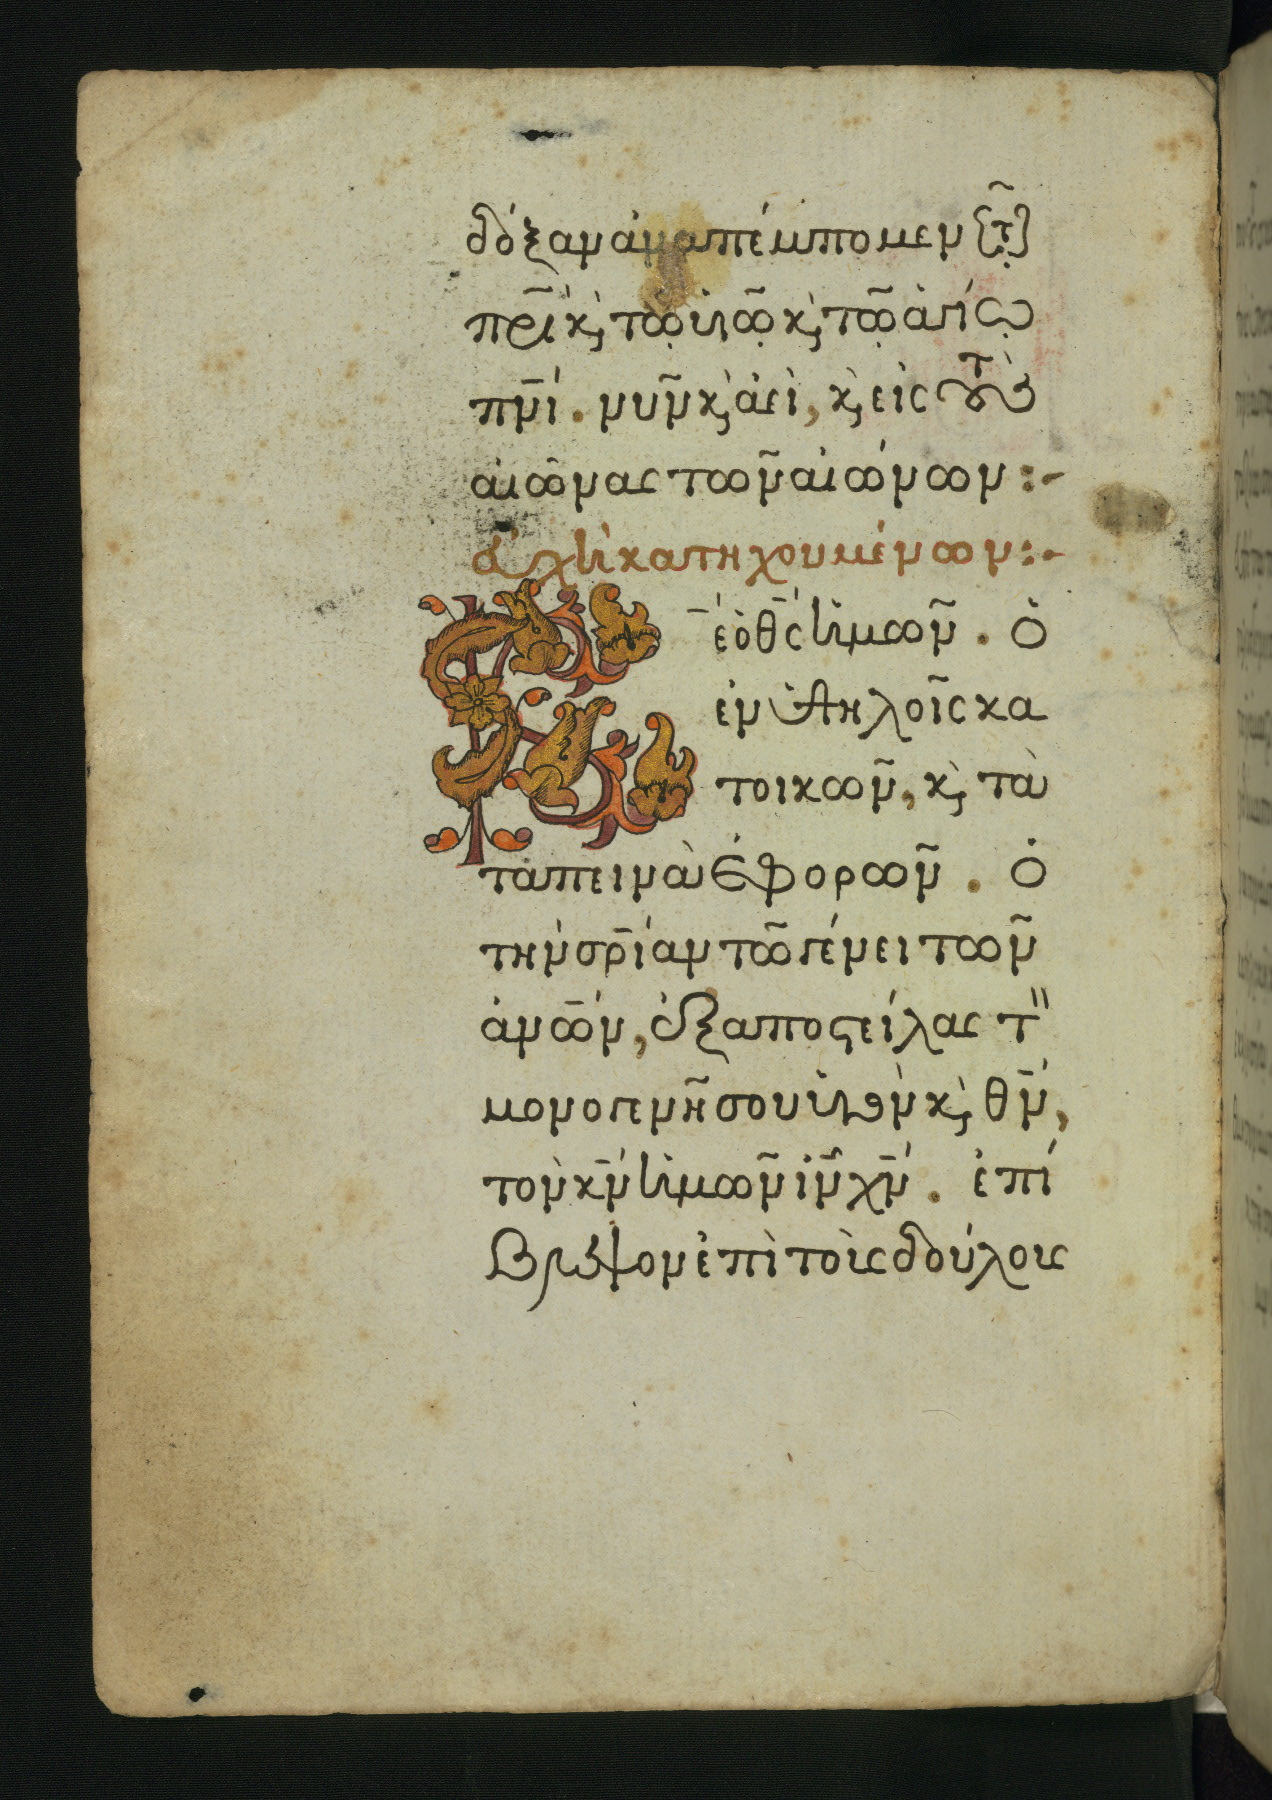 δόξαν ἀναπέμπομεν τῷ
πρὶ κ̀ τῷ ὑιῷ κ̀ τῷ ἁγίῳ
πνί. νῦν κ̀ ἀεὶ, κ̀ εἰς τοὺς
αἰῶνας τῶν αἰώνων :-
εὐχὴ κατηχουμένων :-
Κ̅ε ὁ θ̅ς ἡμῶν. ὁ
ἐν ὑψηλοῖς κα
τοικῶν, κ̀ τὰ
ταπεινὰ ἐφορῶν. ὁ
τὴν σρ̅ίαν τῶ γένει τῶν
ἀνω̅ν, ἐξαποστείλας τὸν
μονογενῆ σου ὑιὸν κ̀ θ̅ν,
τὸν κ̅ν ἡμῶν ἰ̅ν χ̅ν. ἐπί
βλεψον ἐπὶ τοὺς δούλους